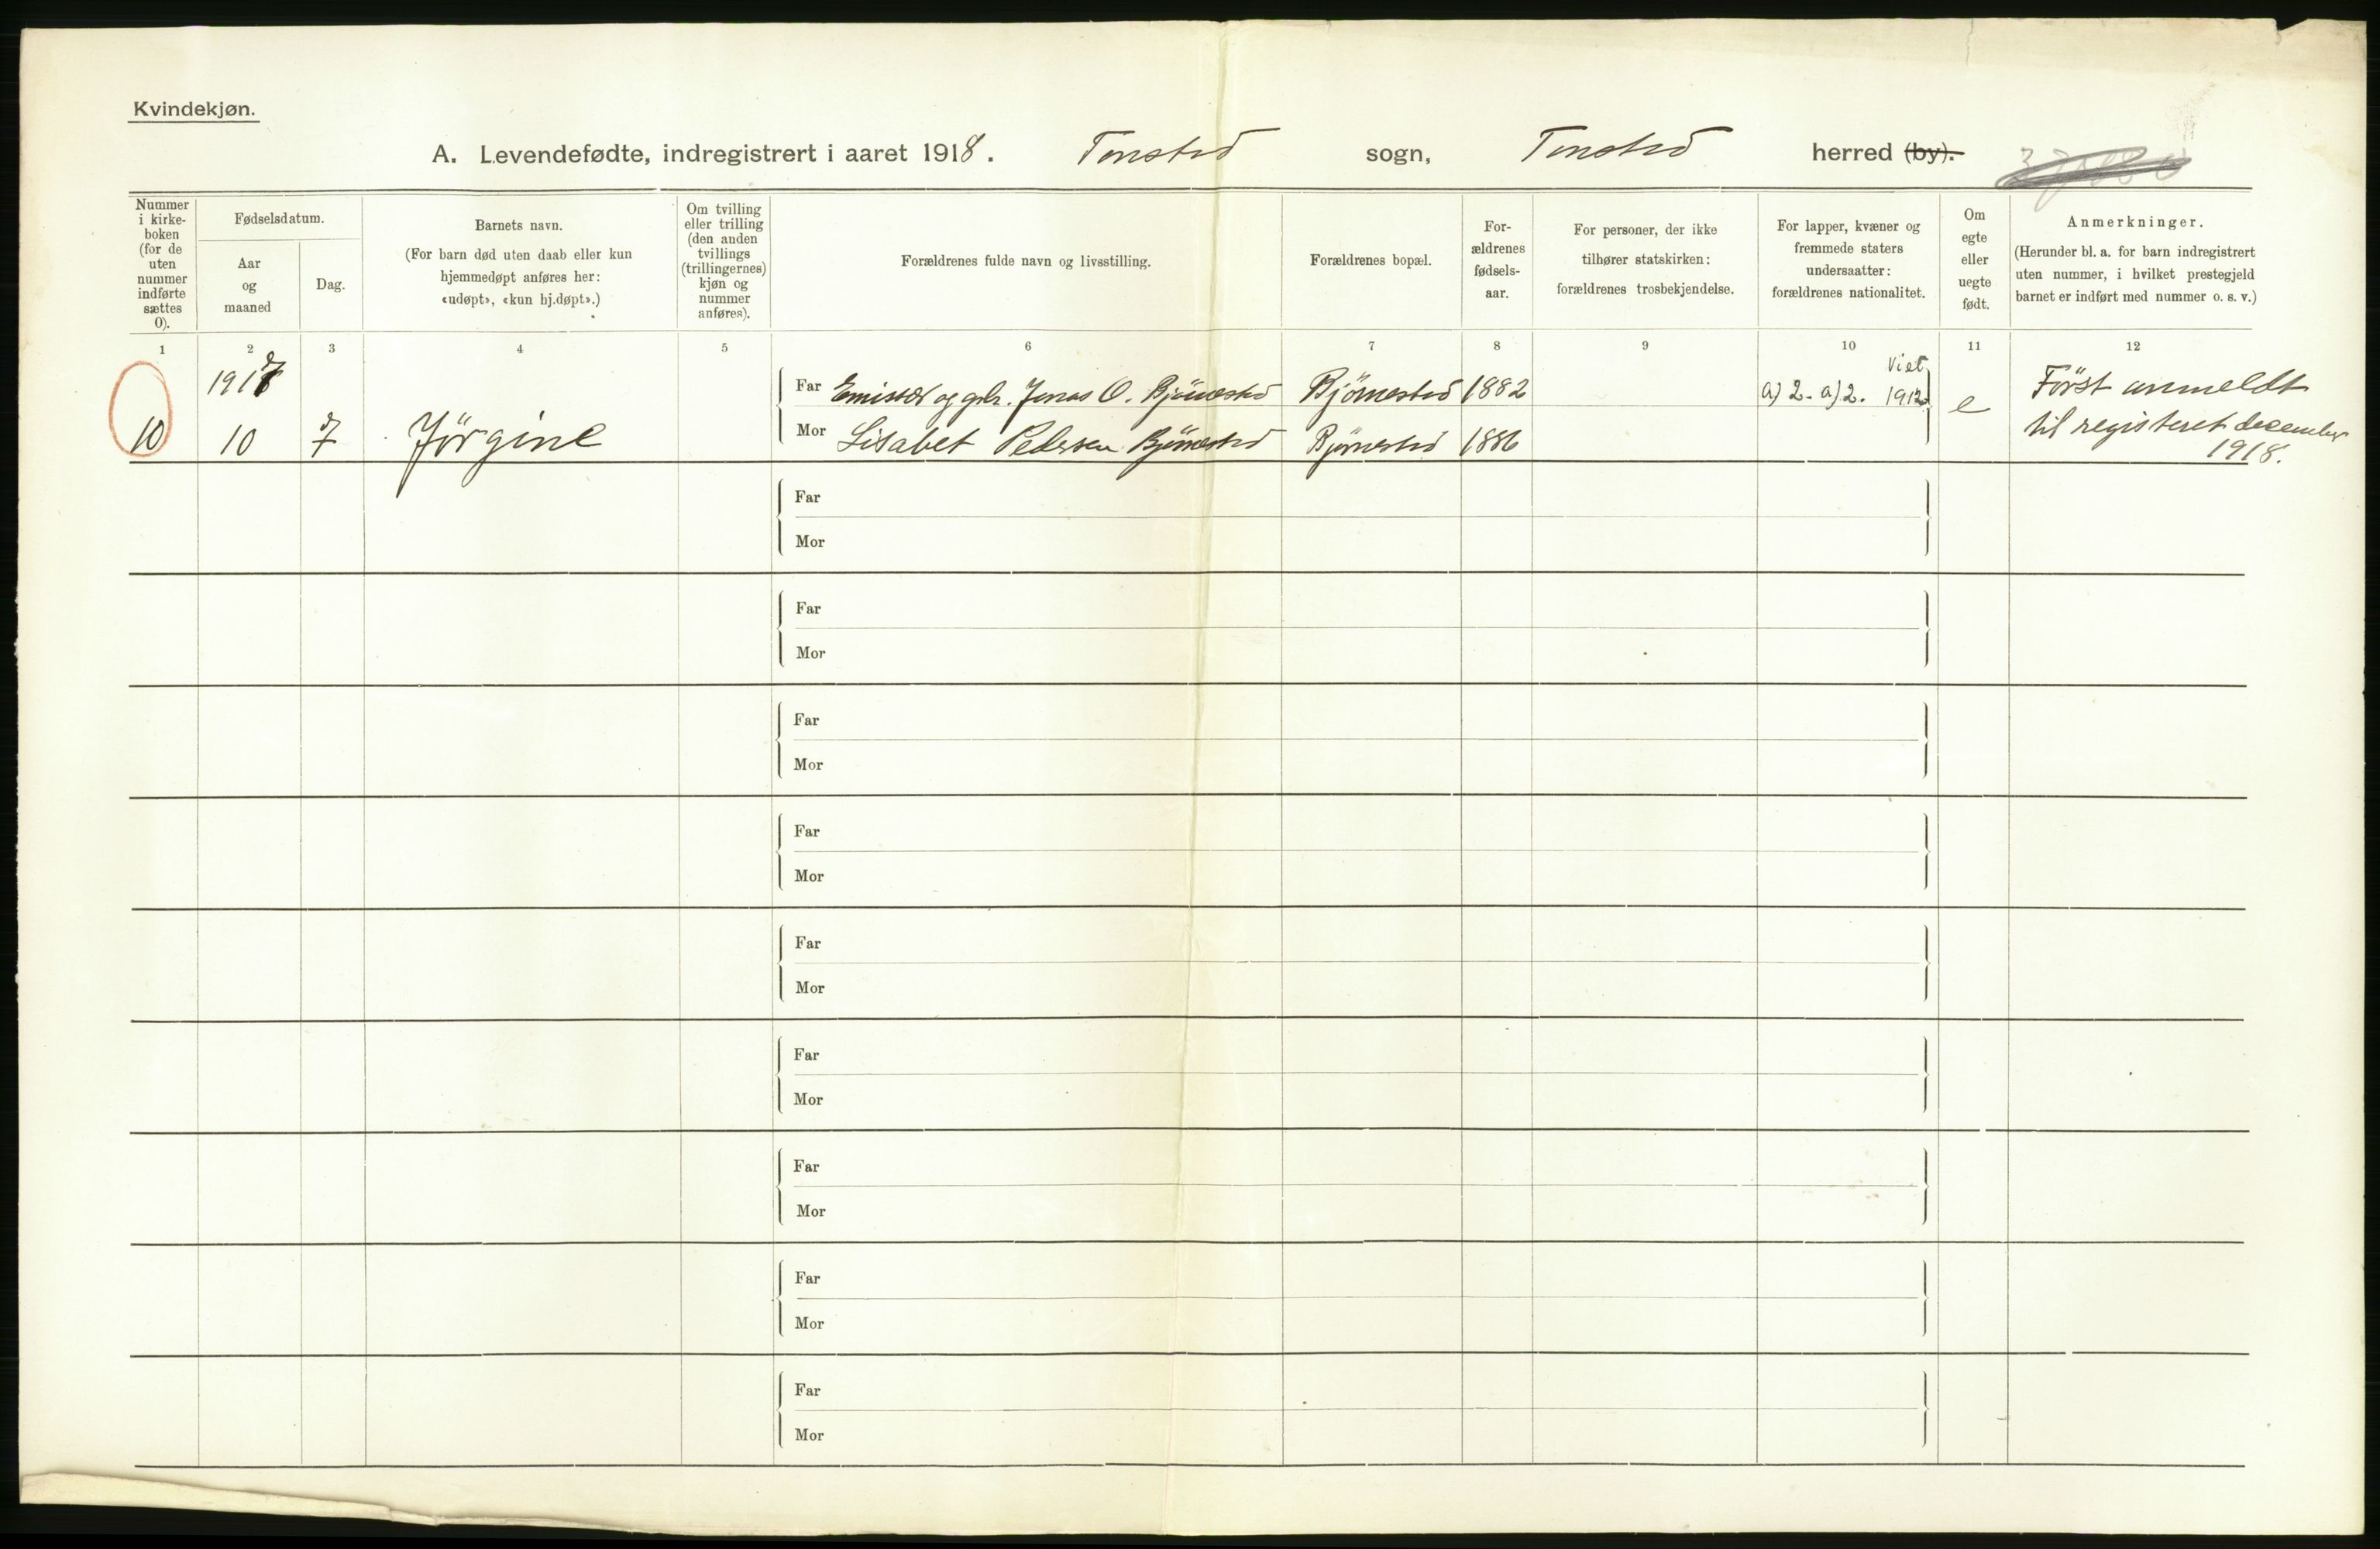 Kvindekjøn.
A. Levendefødte, indregistrert i aaret 1918. Tonstad sogn, Tonstad herred (by).
Nummer i kirke- boken (for de uten nummer indførte sættes 0).
Fødselsdatum.
Aar og maaned
Dag.
Barnets navn.
(For barn død uten daab eller kun hjemmedøpt anføres her: «udøpt», «kun hj.døpt».)
Om tvilling eller trilling (den anden tvillings (trillingernes) kjøn og nummer anføres).
Forældrenes fulde navn og livsstilling.
Forældrenes bopæl.
For- ældrenes fødsels- aar.
For personer, der ikke tilhører statskirken: forældrenes trosbekjendelse.
For lapper, kvæner og fremmede staters undersaatter: forældrenes nationalitet.
Om egte eller uegte født.
Anmerkninger.
(Herunder bl. a. for barn indregistrert uten nummer, i hvilket prestegjeld barnet er indført med nummer o. s. v.)
1 2 3 4 5 6 7 8 9 10 11 12
1917 Far Emissær og gbr. Jonas O. Bjørnestad Bjørnestad 1882 a) 2 - a) 2. Viet 1912 e Först anmeldt
10 10 7 Jörgine Mor Lisabet Pedersen Bjørnestad Bjørnestad 1886 til registeret december
1918.
Far
Mor
Far
Mor
Far
Mor
Far
Mor
Far
Mor
Far
Mor
Far
Mor
Far
Mor
Far
Mor